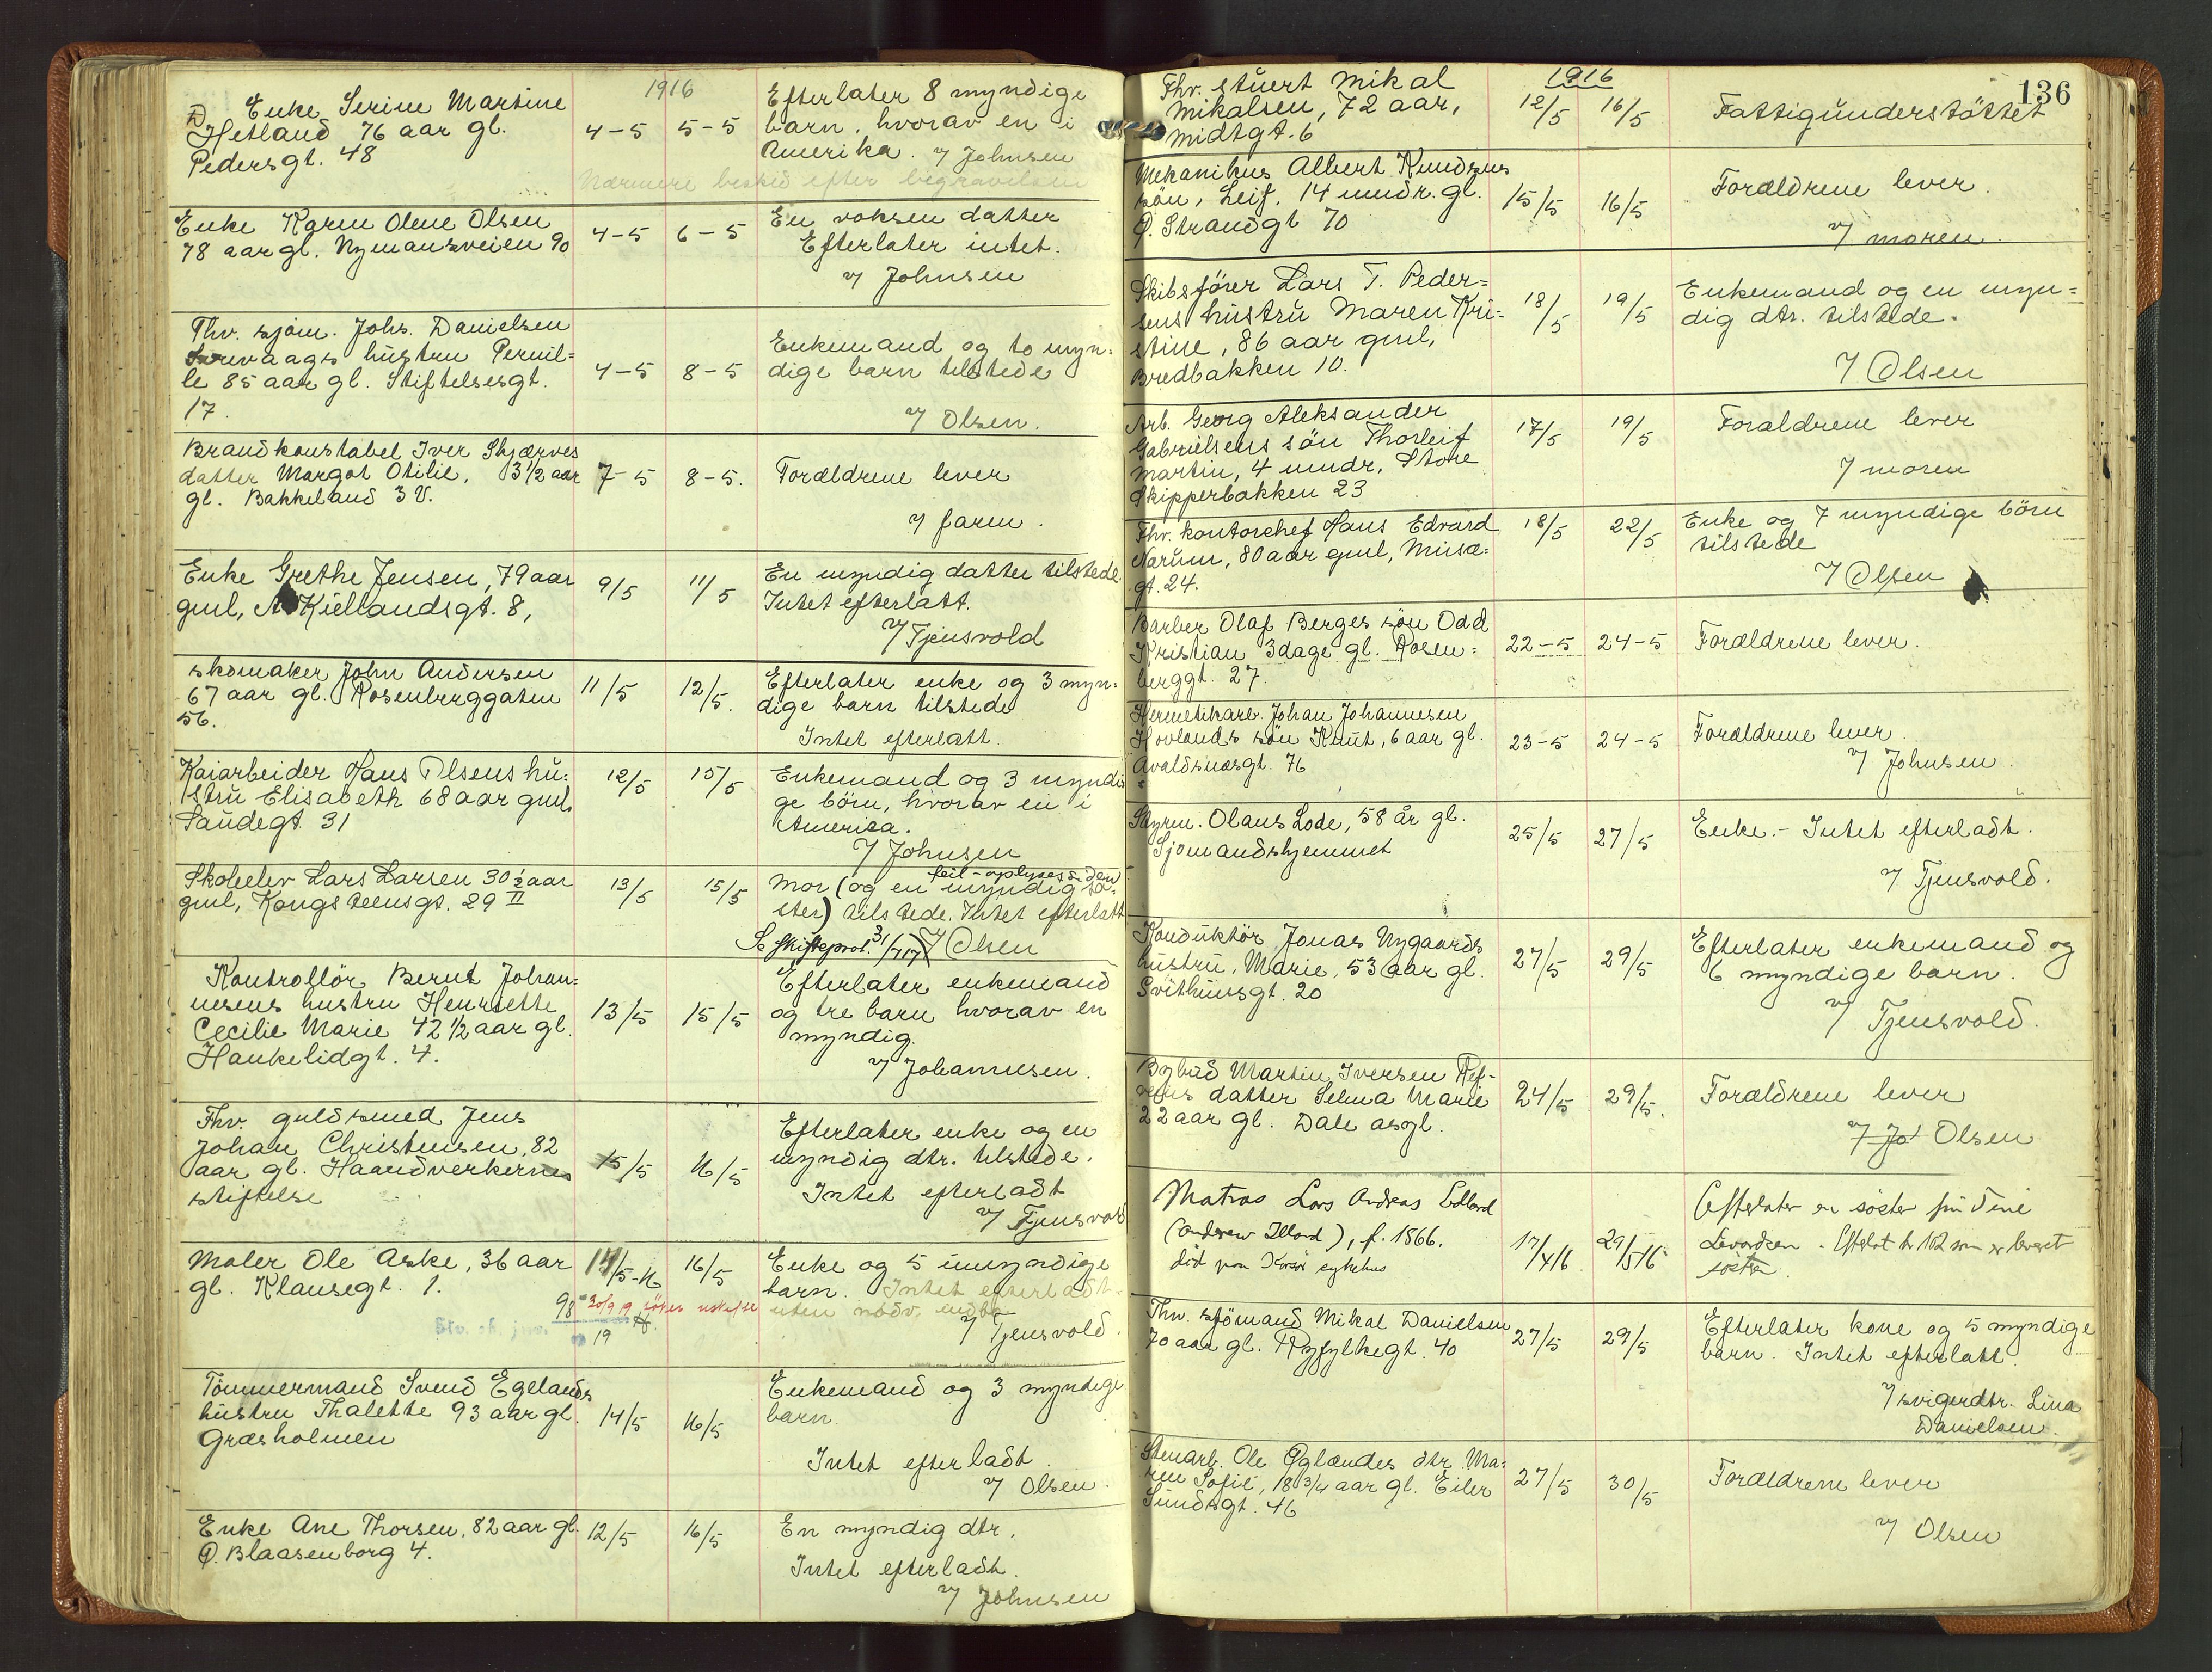 1916
Enke Serine Martine
Hetland 76 aar gl.
Pedersgt. 48
4-5
5-5
Efterlater 8 myndige
barn, hvorav en i
Amerika. v/ Johnsen
Nærmere besked efter begravelsen
Enke Karen Olene Olsen
78 aar gl. Nymansveien 90
4-5
6-5
En voksen datter
Efterlater intet.
v/ Johnsen
Thv. sjøm. Johs. Danielsen
hustru Pernil=
le 85 aar gl. Stiftelsesgt.
17.
4-5
8-5
Enkemand og to myn=
dige barn tilstede
v/ Olsen.
Brandkonstabel Iver Skjærves
datter Margot Otilie, 3½ aar
gl. Bakkeland 3 V.
7-5
8-5.
Forældrene lever
v/ faren.
Enke Grethe Jensen, 79 aar
gml, A Kiellandsgt. 8,
9/5
11/5
En myndig datter tilstede.
Intet efterlatt.
v/ Tjensvold
skomaker John Andersen
67 aar gl. Rosenberggaten
56.
11/5
12/5.
Efterlater enke og 3 myn=
dige barn tilstede
Intet efterlatt.
Kaiarbeider Hans Olsens hu=
stru Elisabeth 68 aar gml,
Sandegt. 31
12/5
15/5
Enkemand og 3 myndi
ge børn, hvorav en i
Amerika.
v/ Johnsen
Skoleelev Lars Larsen 30½ aar
gml, Kongsteensgt. 29 II
13/5
15/5
feil - oplyses siden
Mor (og en myndig sø=
ster) tilstede. Intet efterlatt
Se skifteprot. 31/7 17) v/ Olsen
Kontrollör Bernt Johan=
nesens hustru Henriette
Cecilie Marie 42½ aar gl.
Haukelidgt. 4.
13/5
15/5
Efterlater enkemand
og tre barn hvorav en
myndig.
v/ Johannesen.
Thv. guldsmed Jens
Johan Christensen, 82
aar gl. Haandverkernes
stiftelse
15/5
16/5
Efterlater enke og en
myndig dtr. tilstede.
Intet efterladt
v/ Tjensvold
Maler Ole Aske, 36 aar
gl. Klausegt. 1.
14/5-16
16/5
Enke og 5 umyndige
barn. Intet efterladt
uten nødv. indbo
v/ Tjensvold.
98
19
Tömmermand Svend Egelands
hustru Thalette 93 aar gl.
Græsholmen
14/5
16/5
Enkemand og 3 myndige
barn
Intet efterladt.
v/ Olsen.
Enke Ane Thorsen, 82 aar gl.
Ø. Blaasenborg 4.
12/5
16/5
En myndig dtr.
Intet efterladt.
v/ Johnsen
136
1916
Thv. stuert Mikal
Mikalsen, 72 aar,
Midtgt. 6
12/5
16/5
Fattigunderstöttet
Mekanikus Albert Knudsens
søn, Leif, 14 mndr. gl.
Ø. Strandgt 70
15/5
16/5
Forældrene lever.
v/ moren.
Skibsfører Lars T. Peder=
sens hustru Maren Kri=
stine, 86 aar gml,
Bredbakken 10.
18/5
19/5
Enkemand og en myn=
dig dtr. tilstede.
v/ Olsen
Arb. Georg Aleksander
Gabrielsens søn Thorleif
Martin, 4 mndr, Store
Skipperbakken 23
17/5
19/5
Forældrene lever
v/ moren
Thv. kontorchef Hans Edvard
Narum, 80 aar gml, Musæ=
gt. 24.
18/5
22/5
Enke og 7 myndige börn
tilstede
v/ Olsen
Barber Olaf Berges søn Odd
Kristian 3 dage gl. Rosen=
berggt. 27.
22-5
24-5
Forældrene lever.
Hermetikarb. Johan Johannesen
Hovlands søn Knut, 6 aar gl.
Avaldsnæsgt. 76
23-5
24-5
Forældrene lever.
v/ Johnsen.
Styrm. Olaus Lode, 58 år gl.
Sjømandshjemmet
25/5
27/5
Enke. - Intet efterladt.
v/ Tjensvold.
Konduktör Jonas Nygaards
hustru, Marie, 53 aar gl.
Svithunsgt. 20
27/5
29/5
Efterlater enkemand og
6 myndige barn.
v/ Tjensvold.
Bybud Martin Iversen Ref-
datter Selma Marie
22 aar gl. Dale asyl.
24/5
29/5.
Forældrene lever
v/ Jo Olsen
Matros Lars Andreas Edland
(Andrew Illand), f. 1866.
död paa sykehus
17/4 16
29/5 16
Efterlater en søster fru Tine
Efterlot kr 102 som er
søster.
Thv. sjömand Mikal Danielsen
70 aar gl. Ryfylkegt. 40
27/5
29/5
Efterlater kone og 5 myndige
barn. Intet efterlatt.
v/ svigerdtr. Lina
Danielsen.
Stenarb. Ole Øglændes dtr. Ma=
ren Sofie, 18 3/4 aar gl. Eiler
Sundsgt. 46
27/5
30/5
Forældrene lever
v/ Olsen